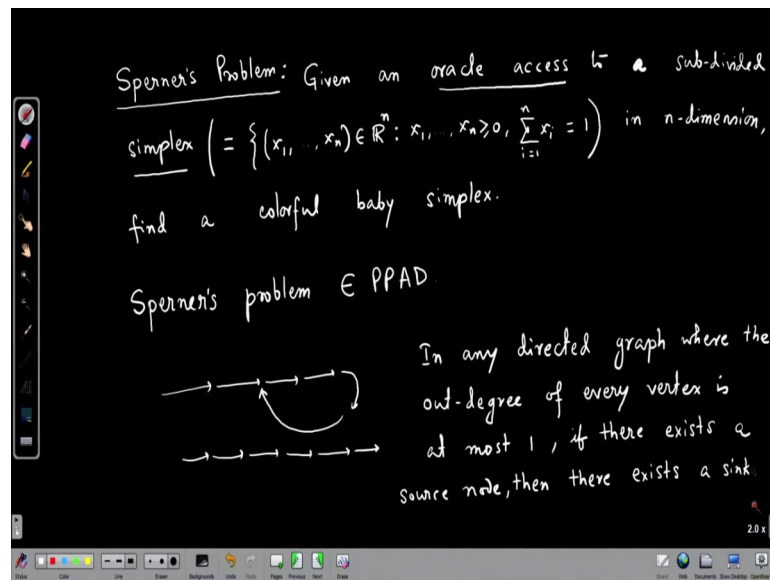 Sperner's Problem: Given an oracle access to a sub-divided
simplex ( = { (x₁, ..., xₙ) ∈ ℝⁿ : x₁, ... xₙ ≥ 0, ∑ᵢ₌₁ⁿ xᵢ = 1 ) in n-dimension,
find a colorful baby simplex.
Sperner's problem ∈ PPAD.
In any directed graph where the
out-degree of every vertex is
at most 1, if there exists a
source node, then there exists a sink.
2.0 x
Stylus Color Line Eraser Backgrounds Undo Redo Pages Previous Next Erase Board Web Documents Show Desktop